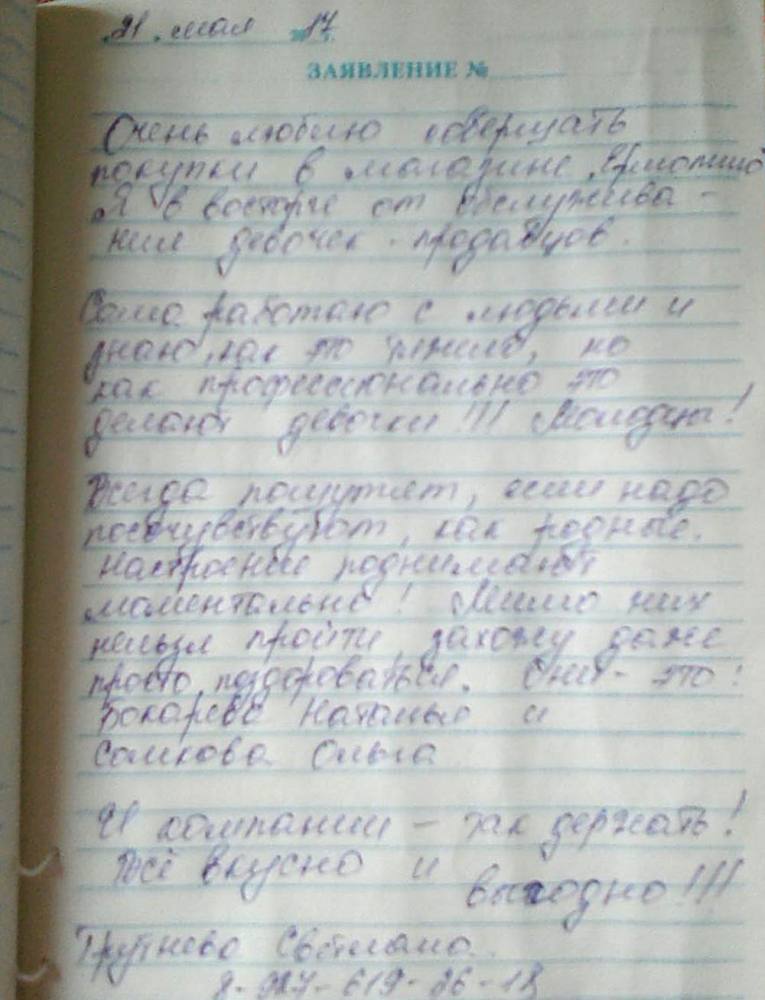 21 мая 2017 г.
ЗАЯВЛЕНИЕ №
Очень люблю совершать
покупки в магазине „Ермолино"
Я в восторге от обслужива-
ния девочек-продавцов.
Сама работаю с людьми и
знаю, как это тяжело, но
как профессионально это
делают девочки!!! Молодцы!
Всегда пошутят, если надо
посочувствуют, как родные.
Настроение поднимают
моментально! Мимо них
нельзя пройти, захожу даже
просто поздороваться. Они - это:
Бокарева Наталья и
Сомкова Ольга
И компании – так держать!
Всё вкусно и
выгодно!!!
Трутнева Светлана.
8-927-619-26-18